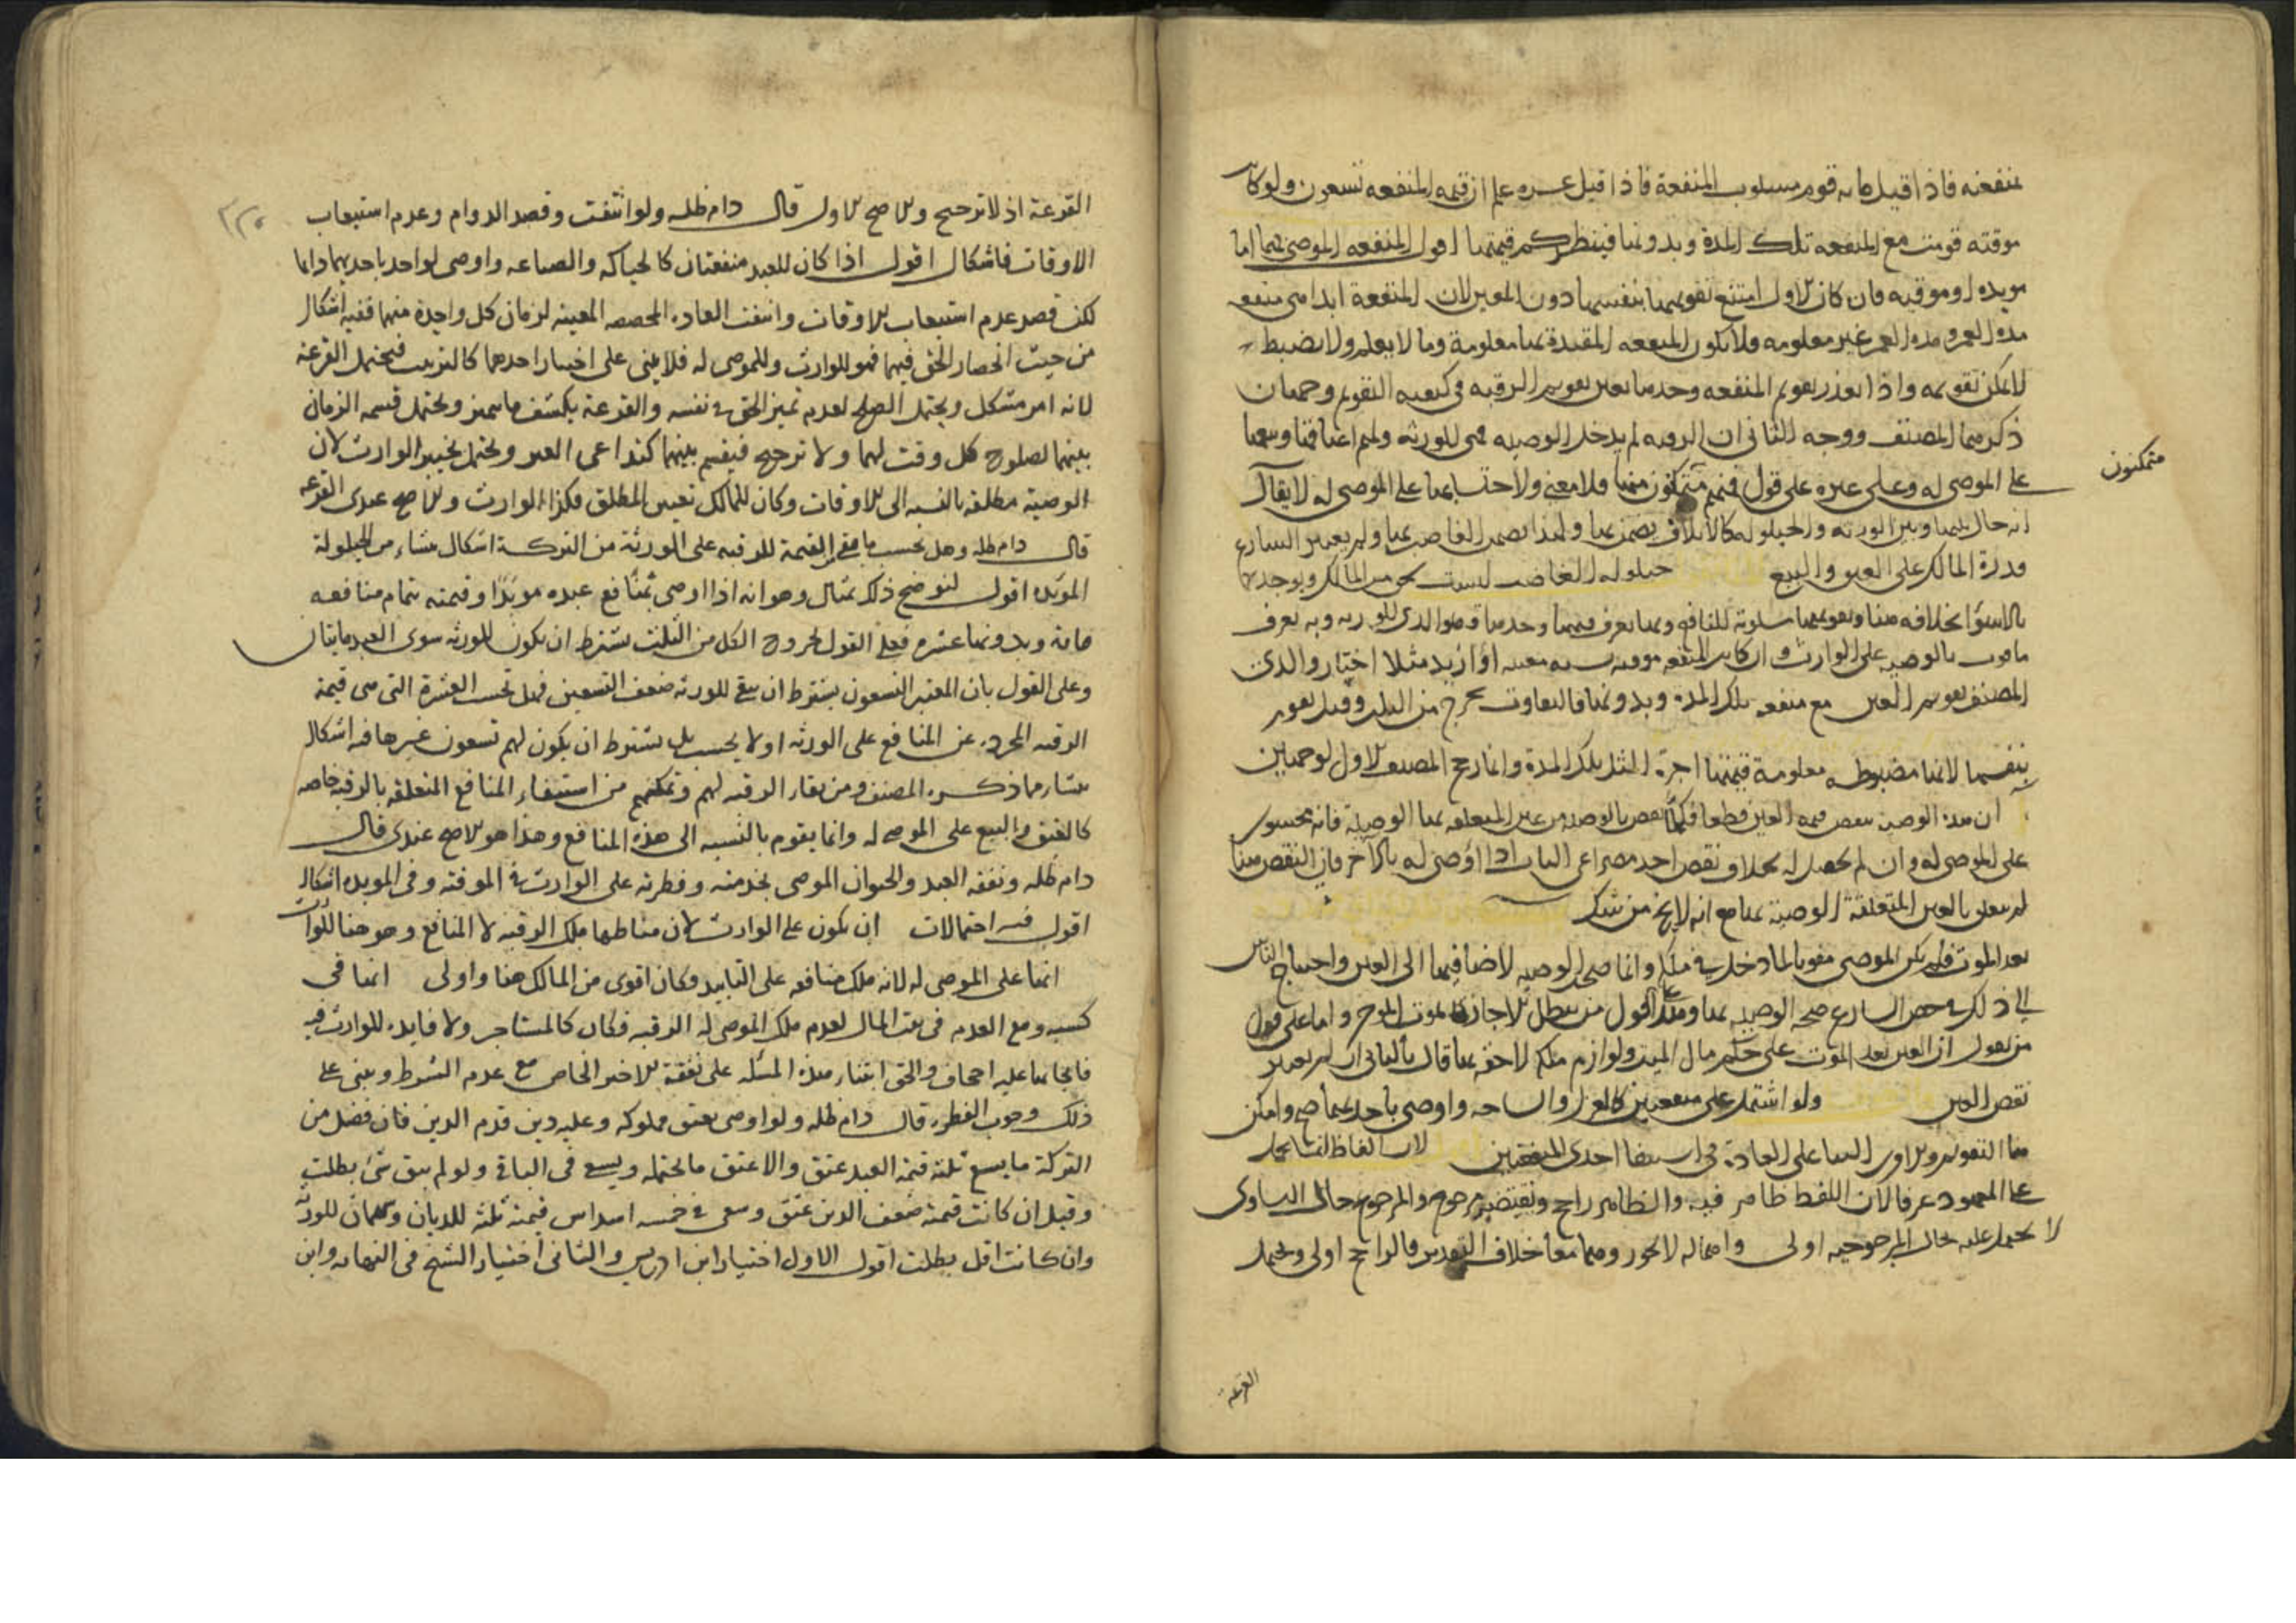 منفعته فاذا قيل مايه قوم مسلوب المنفعة فاذا قيل عشره علم ان قيمه المنفعه تسعون ولو كانت
موقته قومت مع المنفعه تلك المدة وبدونها فينظر كم قيمتها اقول المنفعه الموصى بها اما
مويده او موقته فان كان الاول امتنع تقويمها بنفسها دون العين لان المنفعة ابدا هى منفعه
مده العمر ومده العمر غير معلومه فلا تكون المنفعه المقيدة بها معلومة وما لا يعلم ولا يضبط
لا يمكن تقويمه واذا تعذر تقويم المنفعه وحدها تعين تقويم الرقبه فى كيفيه التقويم وجهان
ذكرهما المصنف ووجه الثانى ان الرقبه لم يدخل الوصيه هى للورثه ولهم اعتاقها وبيعها
على الموصى له وعلى غيره على قول فهم متمكنون منها فلا معنى ولاحتسابها على الموصى له لا يقال
متمكنون
انه حال بينها وبين الورثه والحيلوله كالاتلاف يضمن بها ولهذا يضمن الغاصب بها ولم يعتبر الشارع
قدرة المالك على العتق والبيع حيلوله الغاصب ليست بحق من المالك ويوجد بها
بالاستواء بخلافه هنا وتقويمها مسلوبة المنافع وبها يعرف قيمتها وحدها فهو الذى للورثه وبه يعرف
ما فوت بالوصيه على الوارث وان كانت المنفعه موقته بسنه معينه او ازيد مثلا اختار والدى
المصنف تقويم العين مع منفعه تلك المده وبدونها فالتفاوت يخرج من الثلث وقيل تقوم
بنفسها لانها مضبوطه معلومة قيمتها اجرة المثل تلك المدة وانما رجح المصنف الاول لوجهين
ان هذه الوصيه تنقص قيمه العين قطعا فكلما نقص بالوصيه من عين المتعلقه بها الوصية فانه محسوب
على الموصى له وان لم يحصل له بخلاف نقص احد مصراعى الباب اذا اوصى له بالاخر فان النقص هنا
لم يتعلق بالعين المتعلقة الوصية بها مع انه لا يخ من شك
بعد الموت فلم يكن الموصى مفوتا لما دخل فى ملكه وانما صح الوصيه لاضافتها الى العين واحتياج الناس
الى ذلك فرخص الشارع صحه الوصيه بها وهذا على قول من يبطل الاجارة بموت الموجر واما على قول
من يقول ان العين بعد الموت على حكم مال الميت ولوازم ملكه لاحقه بها قال بالثانى ان لم يعتبر
نقص العين ولو اشتمل على منفعتين كالغزل والنساجه واوصى باحديهما صح وامكن
هنا التقويم والاولى البناء على العادة فى استيفاء احدى المنفعتين لان الفاظ الشارع تحمل
على المعهود عرفا لان اللفظ ظاهر فيه والظاهر راجح ونقيضه مرجوح والمرجوح حال التساوى
لا يحمل عليه فحال المرجوحيه اولى واهماله لا يجوز وهما معا خلاف التقدير فالراجح اولى ويحتمل
القرعة
القرعة اذ لا ترجيح والاصح الاول قال دام ظله ولو انتفت وقصد الدوام وعدم استيعاب
الاوقات فاشكال اقول اذا كان للعبد منفعتان كالحياكه والصياغه واوصى لواحد باحديهما دايما
لكن قصد عدم استيعاب الاوقات وانتفت العاده المخصصه المعينه لزمان كل واحدة منهما ففيه اشكال
من حيث انحصار الحق فيهما فهو للوارث وللموصى له فلا يبنى على اختيار احدهما كالتزويج فيحتمل القرعة
لانه امر مشكل ويحتمل الصلح لعدم تميز الحق فى نفسه والقرعة يكشف ما تميز ويحتمل قسمه الزمان
بينهما لصلوح كل وقت لهما ولا ترجيح فيقسم بينهما كتداعى العين ويحتمل تخيير الوارث لان
الوصية مطلقه بالنسبه الى الاوقات وكان للمالك تعيين المطلق فكذا الوارث والاصح عندى القرعه
قال دام ظله وهل يحسب ما بقى من القيمة للرقبه على الورثة من التركة اشكال منشاء من الحيلولة
الموبده اقول لنوضح ذلك بمثال وهو انه اذا اوصى بمنافع عبده موبدا وقيمته بتمام منافعه
مائة وبدونها عشره فعلى القول بخروج الكل من الثلث يشترط ان يكون للورثه سوى العبد مايتان
وعلى القول بان المعتبر التسعون يشترط ان يبقى للورثه ضعف التسعين فهل تحسب العشرة التى هى قيمة
الرقبه المجرده عن المنافع على الورثه او لا يحسب بل يشترط ان يكون لهم تسعون غيرها فيه اشكال
منشاء ما ذكره المصنف ومن بقاء الرقبه لهم وتمكنهم من استيفاء المنافع المتعلقه بالرقبه خاصه
كالعتق والبيع على الموصى له وانما يقوم بالنسبه الى هذه المنافع وهذا هو الاصح عندى قال
دام ظله ونفقه العبد والحيوان الموصى بخدمته وفطرته على الوارث فى الموقته وفى الموبده اشكال
اقول فيه احتمالات ان يكون على الوارث لان مناطها ملك الرقبه لا المنافع وهو هنا للوارث
انها على الموصى له لانه ملك منافعه على التابيد فكان اقوى من المالك هنا واولى انها فى
كسبه ومع العدم فى بيت المال لعدم ملك الموصى له الرقبه فكان كالمستاجر ولا فايده للوارث فيه
فايجابها عليه اجحاف والحق ابتناء هذه المسئله على نفقة الاجير الخاص مع عدم الشرط ويبنى على
ذلك وجوب الفطره قال دام ظله ولو اوصى بعتق مملوكه وعليه دين قدم الدين فان فضل من
التركة ما يسع ثلثه قيمة العبد عتق والا عتق ما يحتمله ويسعى فى الباقى ولو لم يبق شئ بطلت
وقيل ان كانت قيمته ضعف الدين عتق وسعى فى خمسه اسداس قيمته ثلثه للديان وسهمان للورثه
وان كانت اقل بطلت اقول الاول اختيار ابن ادريس والثانى اختيار الشيخ فى النهايه وابن